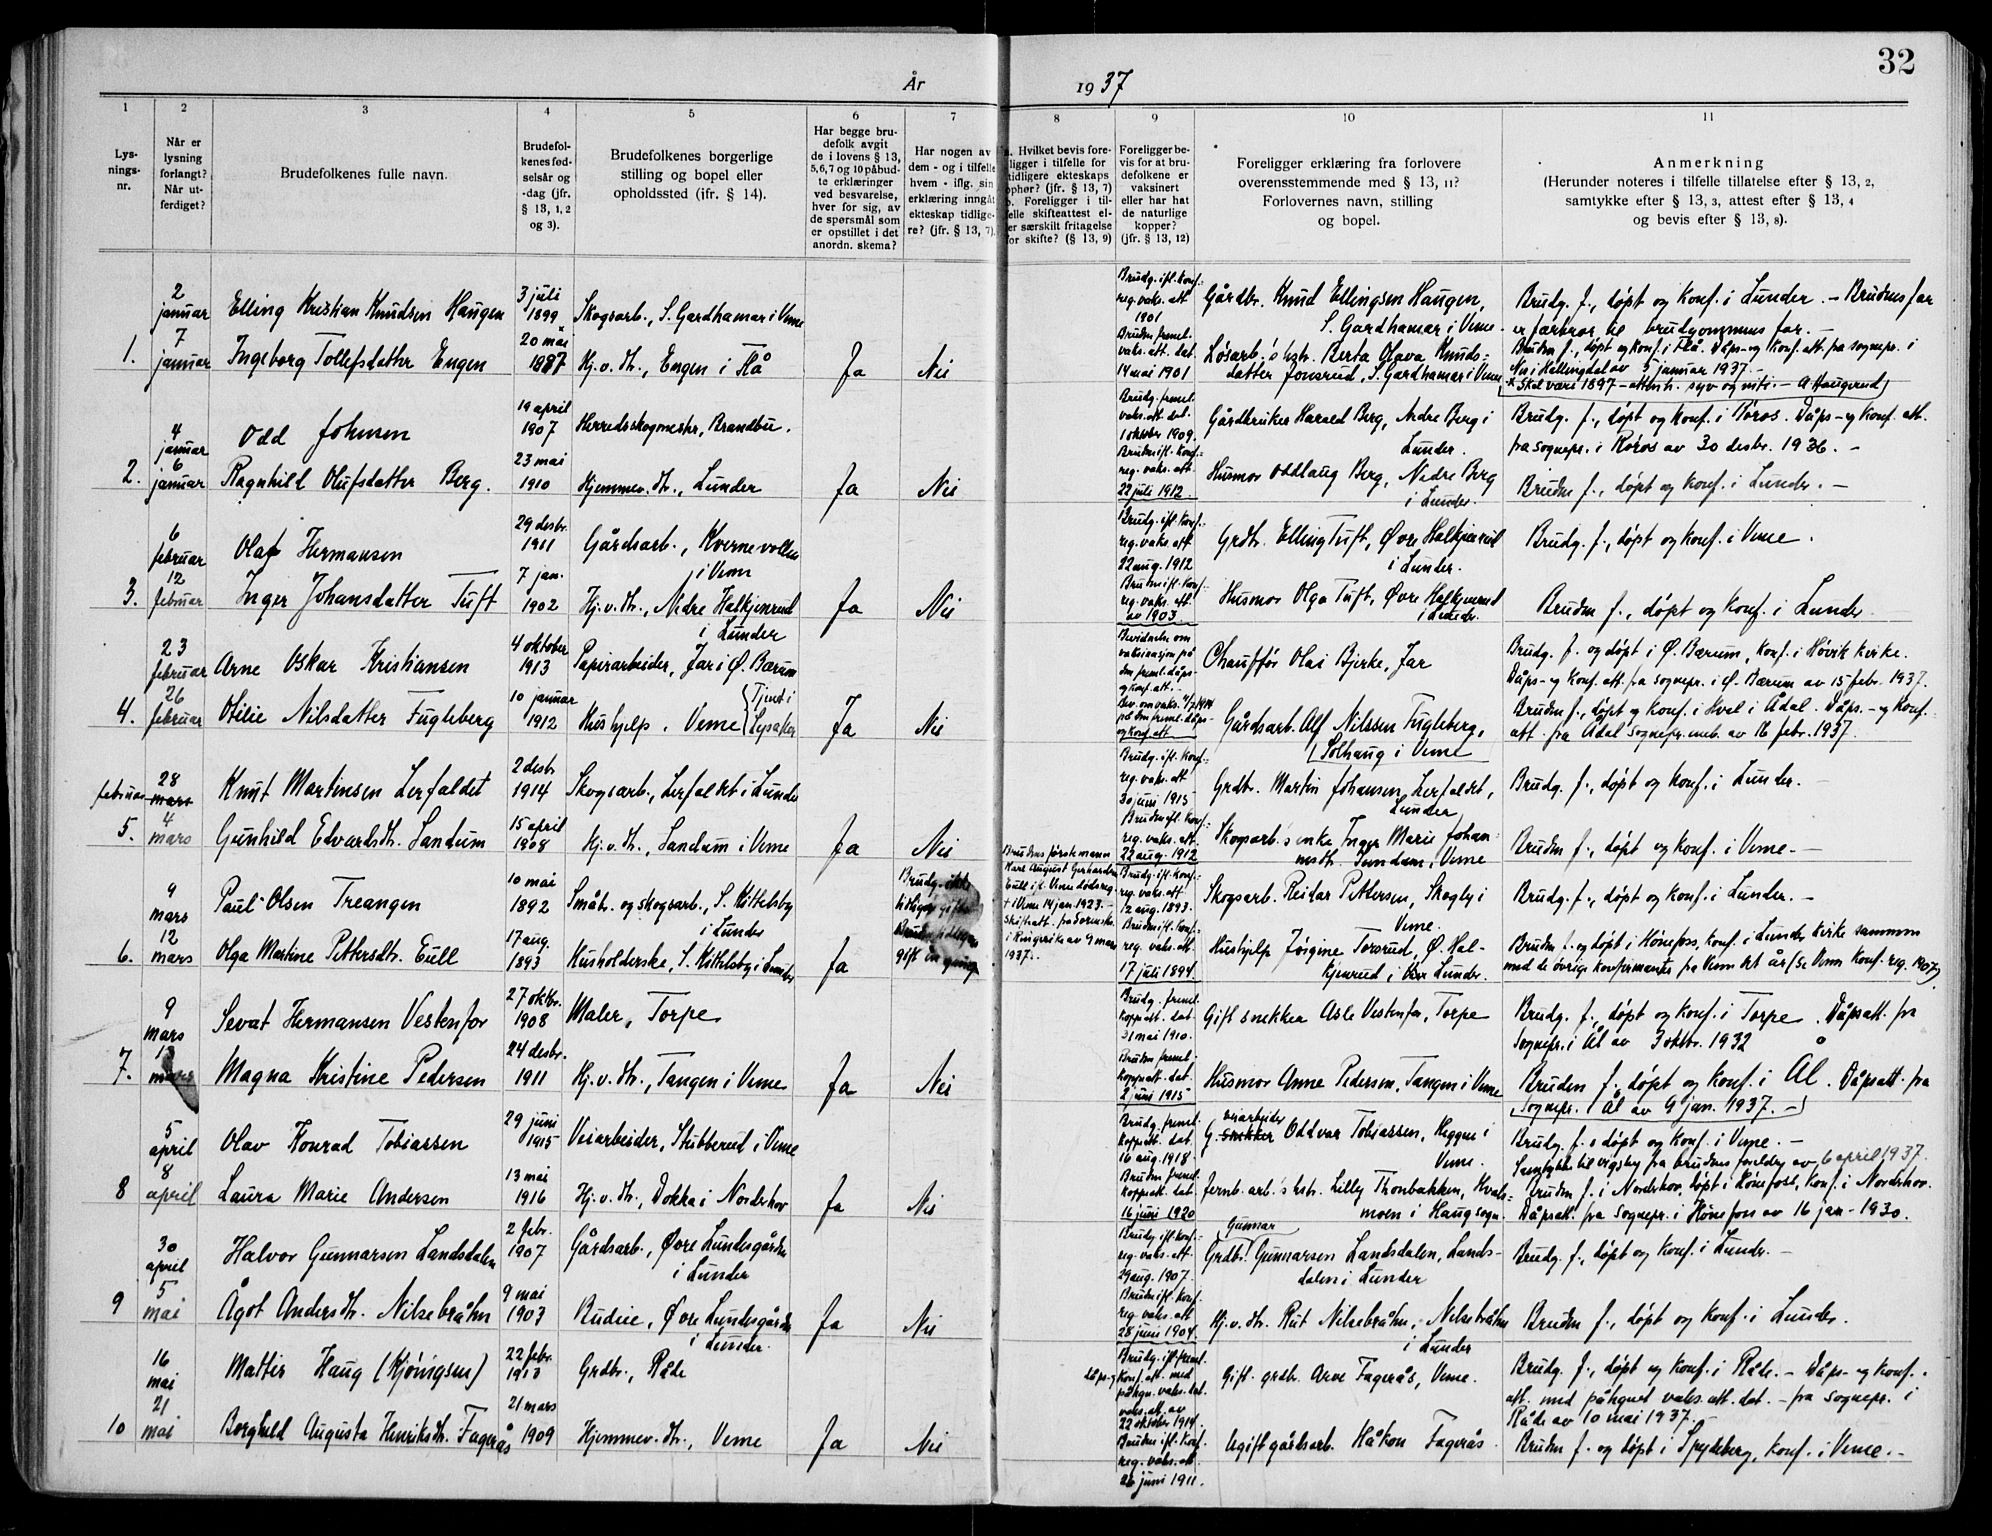 År
1937
32
1
2
3
4
5
6
7
8
9
10
11
Lys-
nings-
nr.
Når er
lysning
forlangt?
Når ut-
ferdiget?
Brudefolkenes fulle navn.
Brudefol-
kenes fød-
selsår og
-dag (jfr.
§ 13, 1, 2
og 3).
Brudefolkenes borgerlige
stilling og bopel eller
opholdssted (jfr. § 14).
Har begge bru-
defolk avgit
de i lovens § 13,
5, 6, 7 og 10 påbud-
te erklæringer
ved besvarelse,
hver for sig, av
de spørsmål som
er opstillet i det
anordn. skema?
Har nogen av
dem - og i tilfelle
hvem - iflg. sin
erklæring inngåt
ekteskap tidlige-
re? (jfr. § 13, 7).
Hvilket bevis fore-
ligger i tilfelle for
tidligere ekteskaps
ophør? (jfr. § 13, 7)
b. Foreligger i til-
felle skifteattest el-
ler særskilt fritagelse
for skifte? (§ 13, 9)
Foreligger be-
vis for at bru-
defolkene er
vaksinert
eller har hat
de naturlige
kopper?
(jfr. § 13, 12)
Foreligger erklæring fra forlovere
overensstemmende med § 13, 11?
Forlovernes navn, stilling
og bopel.
Anmerkning
(Herunder noteres i tilfelle tillatelse efter § 13, 2,
samtykke efter § 13, 3, attest efter § 13, 4
og bevis efter § 13, 8).
1.
2 januar
7 januar
Elling Kristian Knudsen Haugen
Ingeborg Tollefsdatter Engen
3 juli 1899
20 mai 1887
Skogsarb., S. Gardhamar i Veme
Hj.v. dtr., Engen i Flå
Ja
Nei
Brudg. ifl. konf.-
reg. vaks. att.
1901
Bruden freml.
vaks. att. dat.
14 mai 1901
Gårdbr. Knud Ellingsen Haugen,
S. Gardhamar i Veme.
Løsarb.'s hstr. Berta Olava Knuds-
datter Jonsrud, S. Gardhamar i Veme
Brudg. f., døpt og konf. i Lunder. - Brudens far
er farbror til brudgommens far. -
Bruden f., døpt og konf. i Flå. Dåps- og konf. att. fra sognepr. i
Nes i Hallingdal av 5 januar 1937. -
* Skal være 1897 - attenh. syv og nitti. - A Haugerud
2.
4 januar
6 januar
Odd Johnsen
Ragnhild Olufsdatter Berg.
19 april 1907
23 mai 1910
Herredsskogmestr, Brandbu.
Hjemmev. dtr., Lunder
Ja
Nei
Brudg. freml.
vaks. att. dat.
1 oktober 1909.
Bruden ifl. konf.-
reg. vaks. att.
22 juli 1912.
Gårdbruker Harald Berg, Nedre Berg i
Lunder.
Husmor Oddlaug Berg, Nedre Berg
i Lunder.
Brudg. f., døpt og konf. i Røros. Dåps- og konf. att.
fra sognepr. i Røros av 30 desbr. 1936. -
Bruden f., døpt og konf. i Lunder. -
3.
6 februar
12 februar
Olaf Hermansen
Inger Johansdatter Tuft
29 desbr. 1911
7 jan. 1902
Gårdsarb., Kvernevollen
i Veme
Hj.v. dtr., Nedre Halkjenrud
i Lunder
Ja
Nei
Brudg. ifl. konf.-
reg. vaks. att.
22 aug. 1912
Bruden ifl. konf.-
reg. vaks. att.
av 1903.
Grdbr. Elling Tuft, Øvre Halkjenrud
i Lunder.
Husmor Olga Tuft, Øvre Halkjenrud
i Lunder.
Brudg. f., døpt og konf. i Veme.
Bruden f., døpt og konf. i Lunder
4.
23 februar
26 februar
Arne Oskar Kristiansen
Otilie Nilsdatter Fugleberg
4 oktober 1913
10 januar 1912
Papirarbeider, Jar i Ø. Bærum
Hushjelp, Veme (Tjenst i
Lysaker
Ja
Nei
Bevidnelse om
vaksinasjon på
den freml. dåps-
og konf. att. -
Bev. om vaks. 4/7 1914
på den freml. dåps-
og konf. att.
Chauffør Olai Bjerke, Jar
Gårdsarb. Alf Nilssen Fugleberg,
Solhaug i Veme
Brudg. f. og døpt i Ø. Bærum, konf. i Høvik kirke.
Dåps- og konf. att. fra sognepr. i Ø. Bærum av 15 febr. 1937.
Bruden f., døpt og konf. i Hval i Ådal. Dåps- og konf.
att. fra Ådal sognepr. emb. av 16 febr. 1937.
5.
28 februar mars
4 mars
Knut Martinsen Lerfaldet
Gunhild Edvardsdtr. Sandum
2 desbr 1914
15 april 1908
Skogsarb., Lerfaldet i Lunder
Hj.v. dtr., Sandum i Veme
Ja
Nei
Brudg. ifl. konf.-
reg. vaks. att
30 juni 1915
Bruden ifl. konf.-
reg. vaks. att.
22 aug. 1912
Grdbr. Martin Johansen Lerfaldet,
Lunder
Skogsarb's enke Inger Marie Johan-
nesdtr. Sandum, Veme
Brudg. f., døpt og konf. i Lunder. -
Bruden f., døpt og konf. i Veme. -
6.
9 mars
12 mars
Paul Olsen Treangen
Olga Martine Pettersdtr. Eull
10 mai 1892
17 aug. 1893
Småbr. og skogsarb., S. Kittelsby
i Lunder
Husholderske, S. Kittelsby i Lunder
Ja
Brudg. ikke
tidligere gift.
Bruden tidligere
gift en gang
Brudens første mann
Karl August Gerhardsen
Eull ifl. Veme dødsreg.
† i Veme 14 jan. 1923. -
Skifteatt. fra Sorenskr.
i Ringerike av 9 mars
1937. -
Brudg. ifl. konf.-
reg. vaks. att
12 aug. 1893.
Bruden ifl. konf.-
reg. vaks. att.
17 juli 1894.
Skogsarb. Reidar Pettersen, Skogly i
Veme.
Hushjelp Jørgine Torsrud, Ø. Hal-
kjenrud i Lunder.
Brudg. f., døpt og konf. i Lunder. -
Bruden f. og døpt i Hønefoss, konf. i Lunder kirke sammen
med de øvrige konfirmanter fra Veme det år (Se Veme konf. reg. 1907).
7.
9 mars
mars
Sevat Hermansen Vestenfor
Magna Kristine Pedersen
27 oktbr. 1908
24 desbr. 1911
Maler, Torpe
Hj.v. dtr., Tangen i Veme
Ja
Nei
Brudg. freml.
koppeatt. dat.
31 mai 1910.
Bruden freml.
koppeatt. dat.
2 juni 1915
Gift snekker Asle Vestenfor, Torpe
Husmor Anne Pedersen, Tangen i Veme
Brudg. f., døpt og konf. i Torpe. Dåpsatt. fra
sognepr. i Ål av 3 oktbr. 1932
Bruden f., døpt og konf. i Ål. Dåpsatt. fra
sognepr. i Ål av 9 jan. 1937. -
8
5 april
8 april
Olav Konrad Tobiassen
Laura Marie Andersen
29 juni 1915
13 mai 1916
Veiarbeider, Stubberud i Veme
Hj.v. dtr., Dokka i Norderhov
Ja
Nei
Brudg. freml.
koppeatt. dat.
16 aug. 1918.
Bruden freml.
koppeatt. dat.
16 juni 1920
G. snekker veiarbeider Oddvar Tobiassen, Heggen i
Veme.
Jernb.arb.'s hstr. Lilly Thonbakken, Hvals-
moen i Haug sogn.
Brudg. f., døpt og konf. i Veme. -
Samtykke til vigsley fra brudens foreldre av 6 april 1937.
Bruden f. i Norderhov, døpt i Hønefoss, konf. i Norderhov.
Dåpsatt. fra sognepr. i Hønefoss av 16 jan - 1930.
9
30 april
5 mai
Halvor Gunnarsen Landsdalen
Ågot Andersdtr. Nilsebråhn
2 febr. 1907
9 mai 1903
Gårdsarb., Øvre Lundesgården
i Lunder
Budeie, Øvre Lundesgården
i Lunder.
Ja
Nei
Brudg ifl. konf.-
reg. vaks. att.
29 aug. 1907.
Bruden ifl. konf.
reg. vaks. att
28 juni 1904.
Grdbr. Gunnar Gunnarsen Landsdalen, Lands-
dalen i Lunder
Hj.v. dtr. Rut Nilsebråhn, Nilsebråhn
i Lunder
Brudg. f., døpt og konf. i Lunder. -
Bruden f., døpt og konf. i Lunder.
10
16 mai
21 mai
Mattis Haug (Kjønigsen)
Borghild Augusta Henriksdtr. Fagerås
22 febr. 1913
21 mars 1909
Grdbr., Råde
Hjemmev. dtr., Veme
Ja
Nei
dåps- og
Brudg. ifl. freml.
konf. att. med
påtegn. vaks. att. dat.
vaks. att. av
22 oktober 1914.
Bruden ifl. konf.
reg. vaks. att
26 juni 1911.
Gift. grdbr. Arve Fagerås, Veme.
Ugift gårdsarb. Håkon Fagerås
Brudg. f., døpt og konf. i Råde. - Dåps- og konf.
att. med påtegnet vaks. att. dat. - fra sognepr. i
Råde av 10 mai 1937. -
Bruden f. og døpt i Spydeberg, konf. i Veme. -